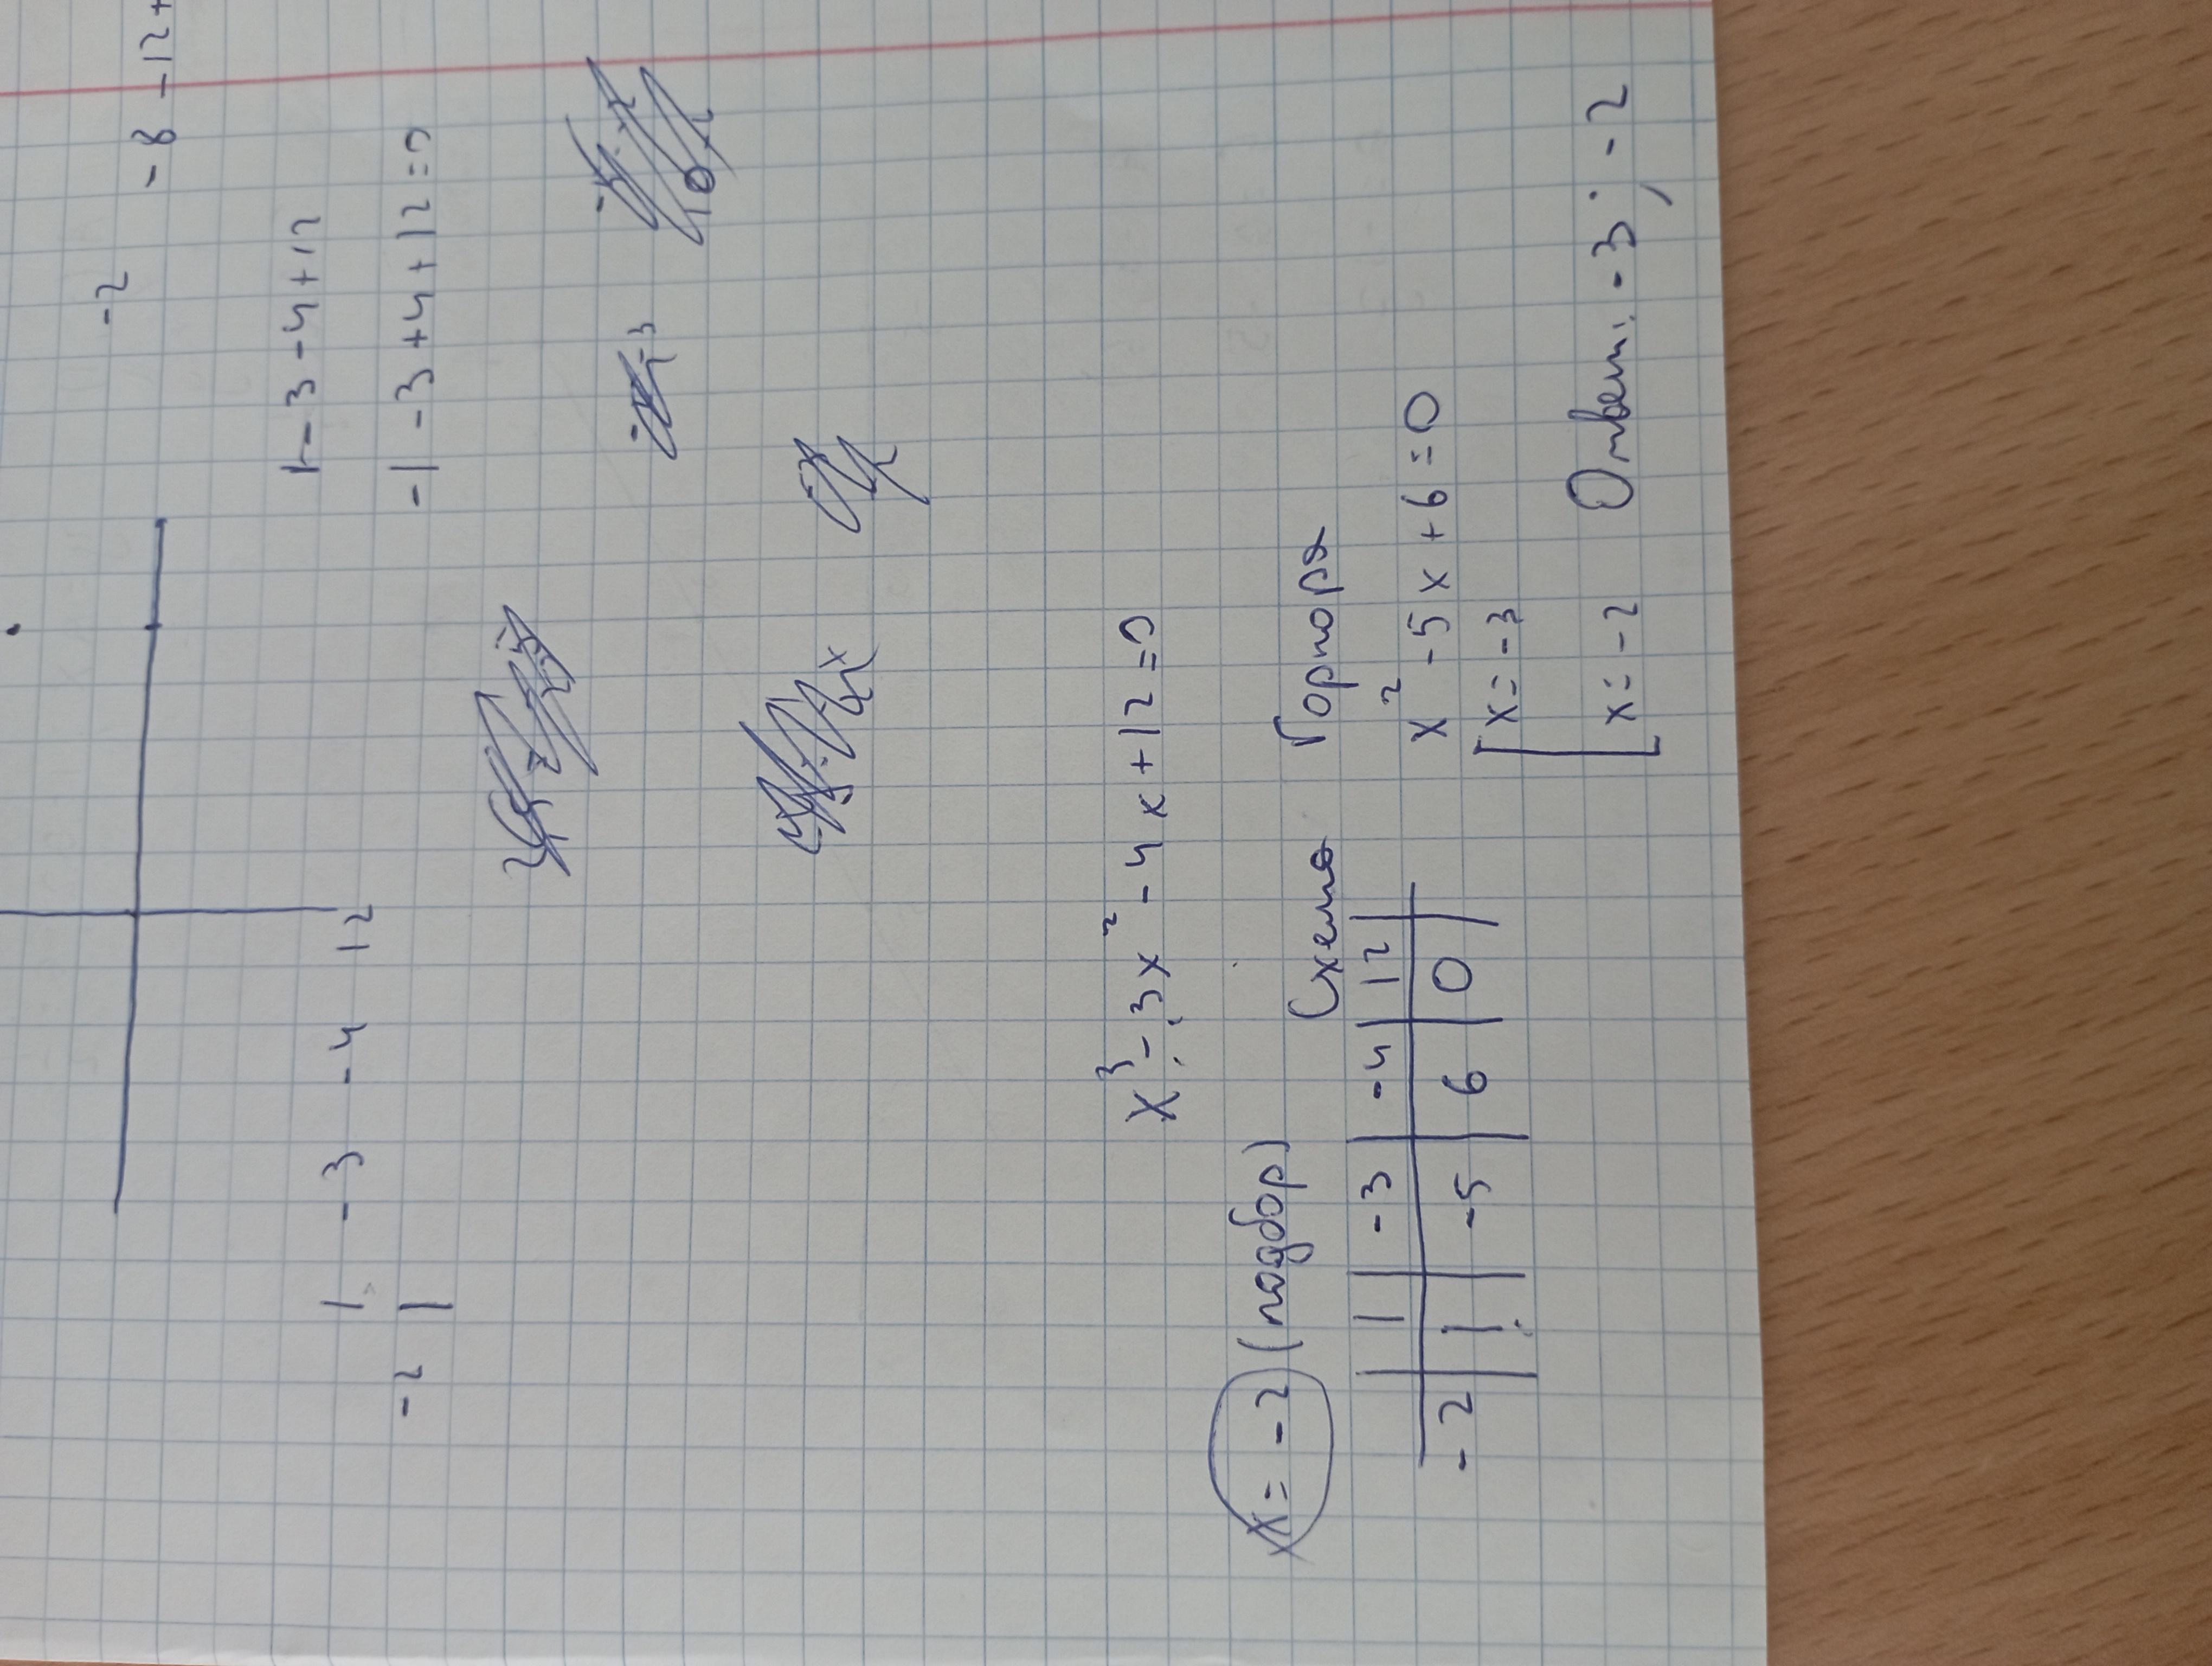 -2
-8 -12+
1 -3 -4 +12
1 -3 -4 12
-1 -3 +4 +12 = 0
-2 1
x³ - 3x² - 4x + 12 = 0
x = -2 (подбор)
Схема Горнора
1 -3 -4 12
-2 1 -5 6 0
x² - 5x + 6 = 0
x = -3
x = -2
Ответ: -3; -2